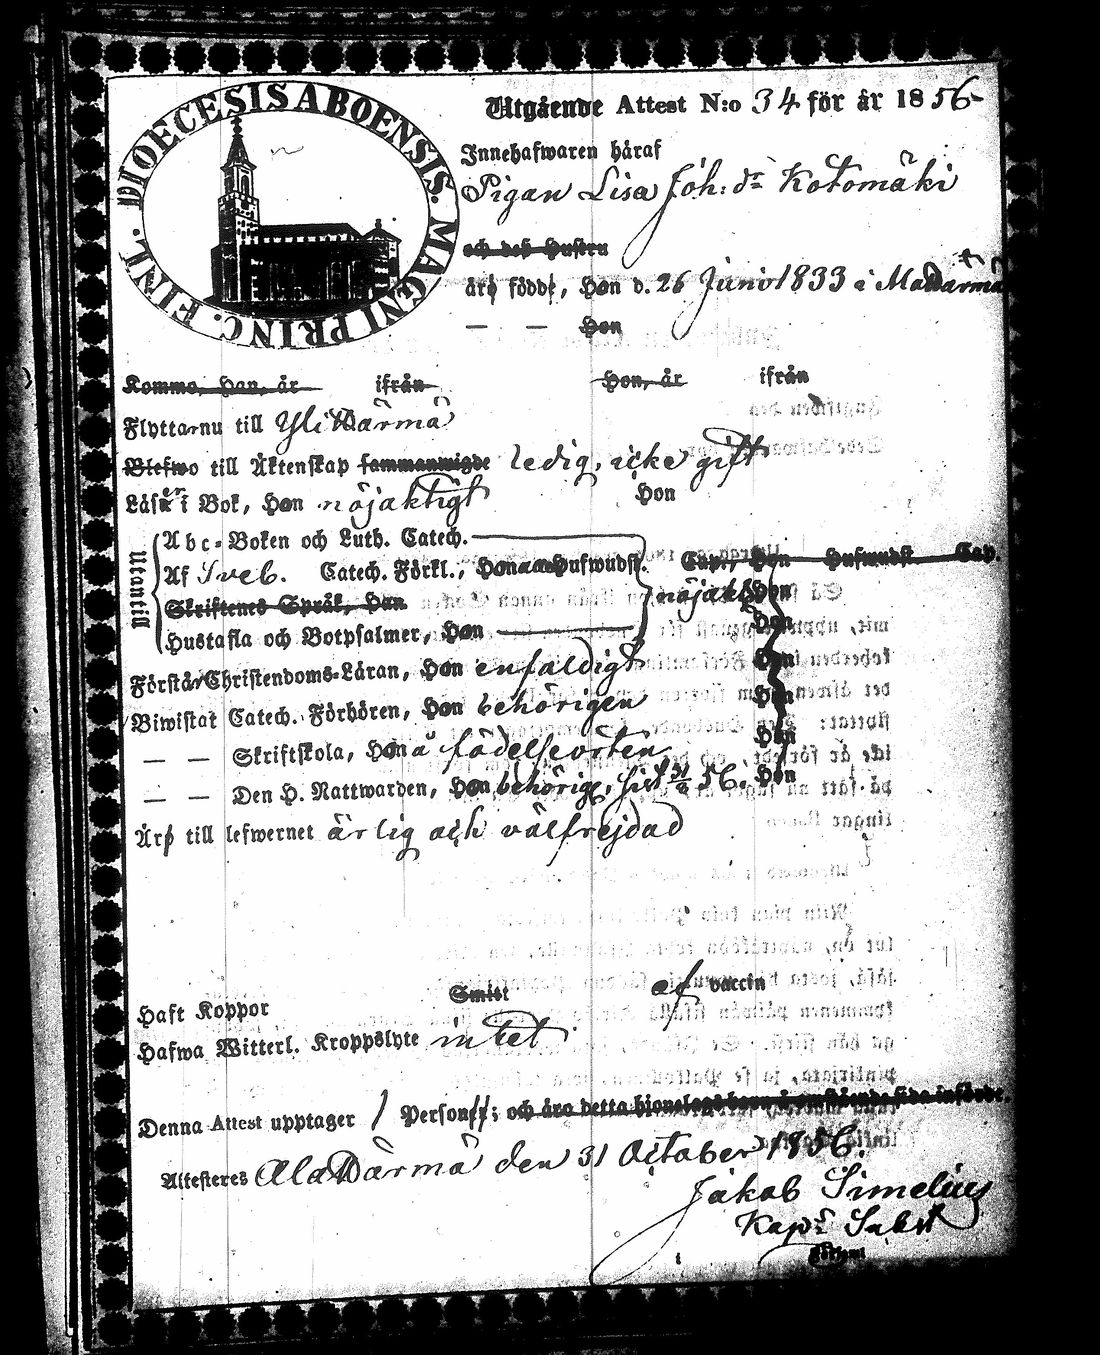 DIOECESIS ABOENSIS. MAGNI PRINC. FINL.
Utgående Attest N:o 34 för år 1856
Innehafwaren häraf
Pigan Lisa Joh: dr Kotomäki
och des Hustru
äro född, Hon d. 26 Junii 1833 i
— — Hon
Komma, Han, år ifrån Hon, år ifrån
Flyttar nu till Yli Härmä
Blefwo till Äktenskap sammanwigde ledig, icke gift
Läser i Bok, Hon nöjaktigt Hon
Utantill
Abc-Boken och Luth. Catech.
Af Sveb. Catech. Förkl., Hon Hufwudst. Cap., Hon Hufwudst. Cap.
Skriftenes Språk, Han nöjakt. Hon
Hustafla och Botpsalmer, Hon Hon
Förstår Christendoms-Läran, Hon enfaldigt Hon
Biwistat Catech. Förhören, Hon behörigen Hon
— — Skriftskola, Hon å födelseorten Hon
— — Den H. Nattwarden, Hon behörig., sist 56. Hon
Är till lefwernet ärlig och välfrejdad
Haft Koppor Smitt af vaccin
Hafwa Witterl. Kroppslyte intet
Denna Attest upptager 1 Person; och äro detta hionelags barn å omstående sida införde.
Attesteres Ala Härmä den 31 October 1856.
Jakob Simelius
Kap: Subst